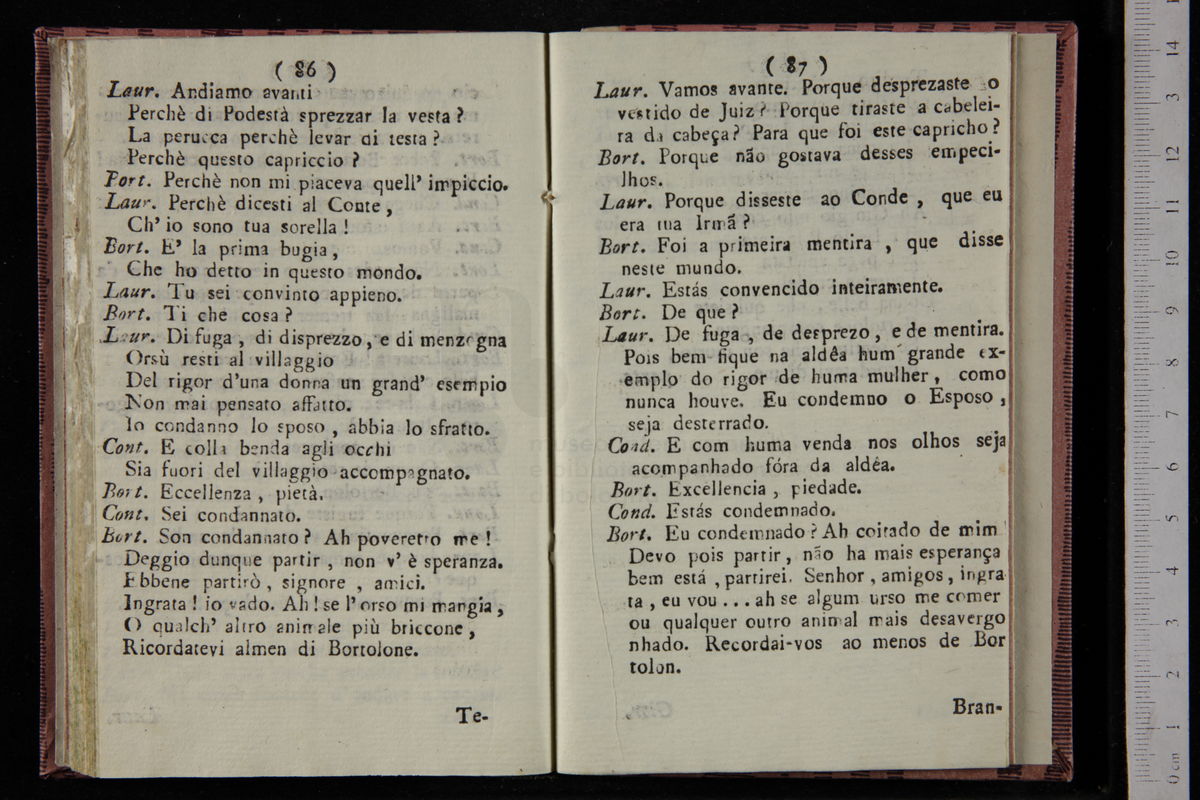 ( 86 )
Laur. Andiamo avanti
Perchè di Podestà sprezzar la vesta ?
La perucca perchè levar di testa ?
Perchè questo capriccio ?
Bort. Perchè non mi piaceva quell' impiccio.
Laur. Perchè dicesti al Conte ,
Ch' io sono tua sorella !
Bort. E' la prima bugia ,
Che ho detto in questo mondo.
Laur. Tu sei convinto appieno.
Bort. Ti che cosa ?
Laur. Di fuga , di disprezzo , e di menzogna
Orsù resti al villaggio
Del rigor d'una donna un grand' esempio
Non mai pensato affatto.
Io condanno lo sposo , abbia lo sfratto.
Cont. E colla benda agli occhi
Sia fuori del villaggio accompagnato.
Bort. Eccellenza , pietà.
Cont. Sei condannato.
Bort. Son condannato ? Ah poveretto me !
Deggio dunque partir , non v' è speranza.
Ebbene partirò , signore , amici.
Ingrata ! io vado. Ah ! se l' orso mi mangia ,
O qualch' altro animale più briccone ,
Ricordatevi almen di Bortolone.
Te-
( 87 )
Laur. Vamos avante. Porque desprezaste o
vestido de Juiz ? Porque tiraste a cabelei-
ra da cabeça ? Para que foi este capricho ?
Bort. Porque não gostava desses empeci-
lhos.
Laur. Porque disseste ao Conde , que eu
era tua Irmã ?
Bort. Foi a primeira mentira , que disse
neste mundo.
Laur. Estás convencido inteiramente.
Bort. De que ?
Laur. De fuga , de desprezo , e de mentira.
Pois bem fique na aldêa hum grande ex-
emplo do rigor de huma mulher , como
nunca houve. Eu condemno o Esposo ,
seja desterrado.
Cond. E com huma venda nos olhos seja
acompanhado fóra da aldêa.
Bort. Excellencia , piedade.
Cond. Estás condemnado.
Bort. Eu condemnado ? Ah coitado de mim !
Devo pois partir , não ha mais esperança
bem está , partirei. Senhor , amigos , ingra
ta , eu vou . . . ah se algum urso me comer
ou qualquer outro animal mais desavergo
nhado. Recordai-vos ao menos de Bor
tolon.
Bran-